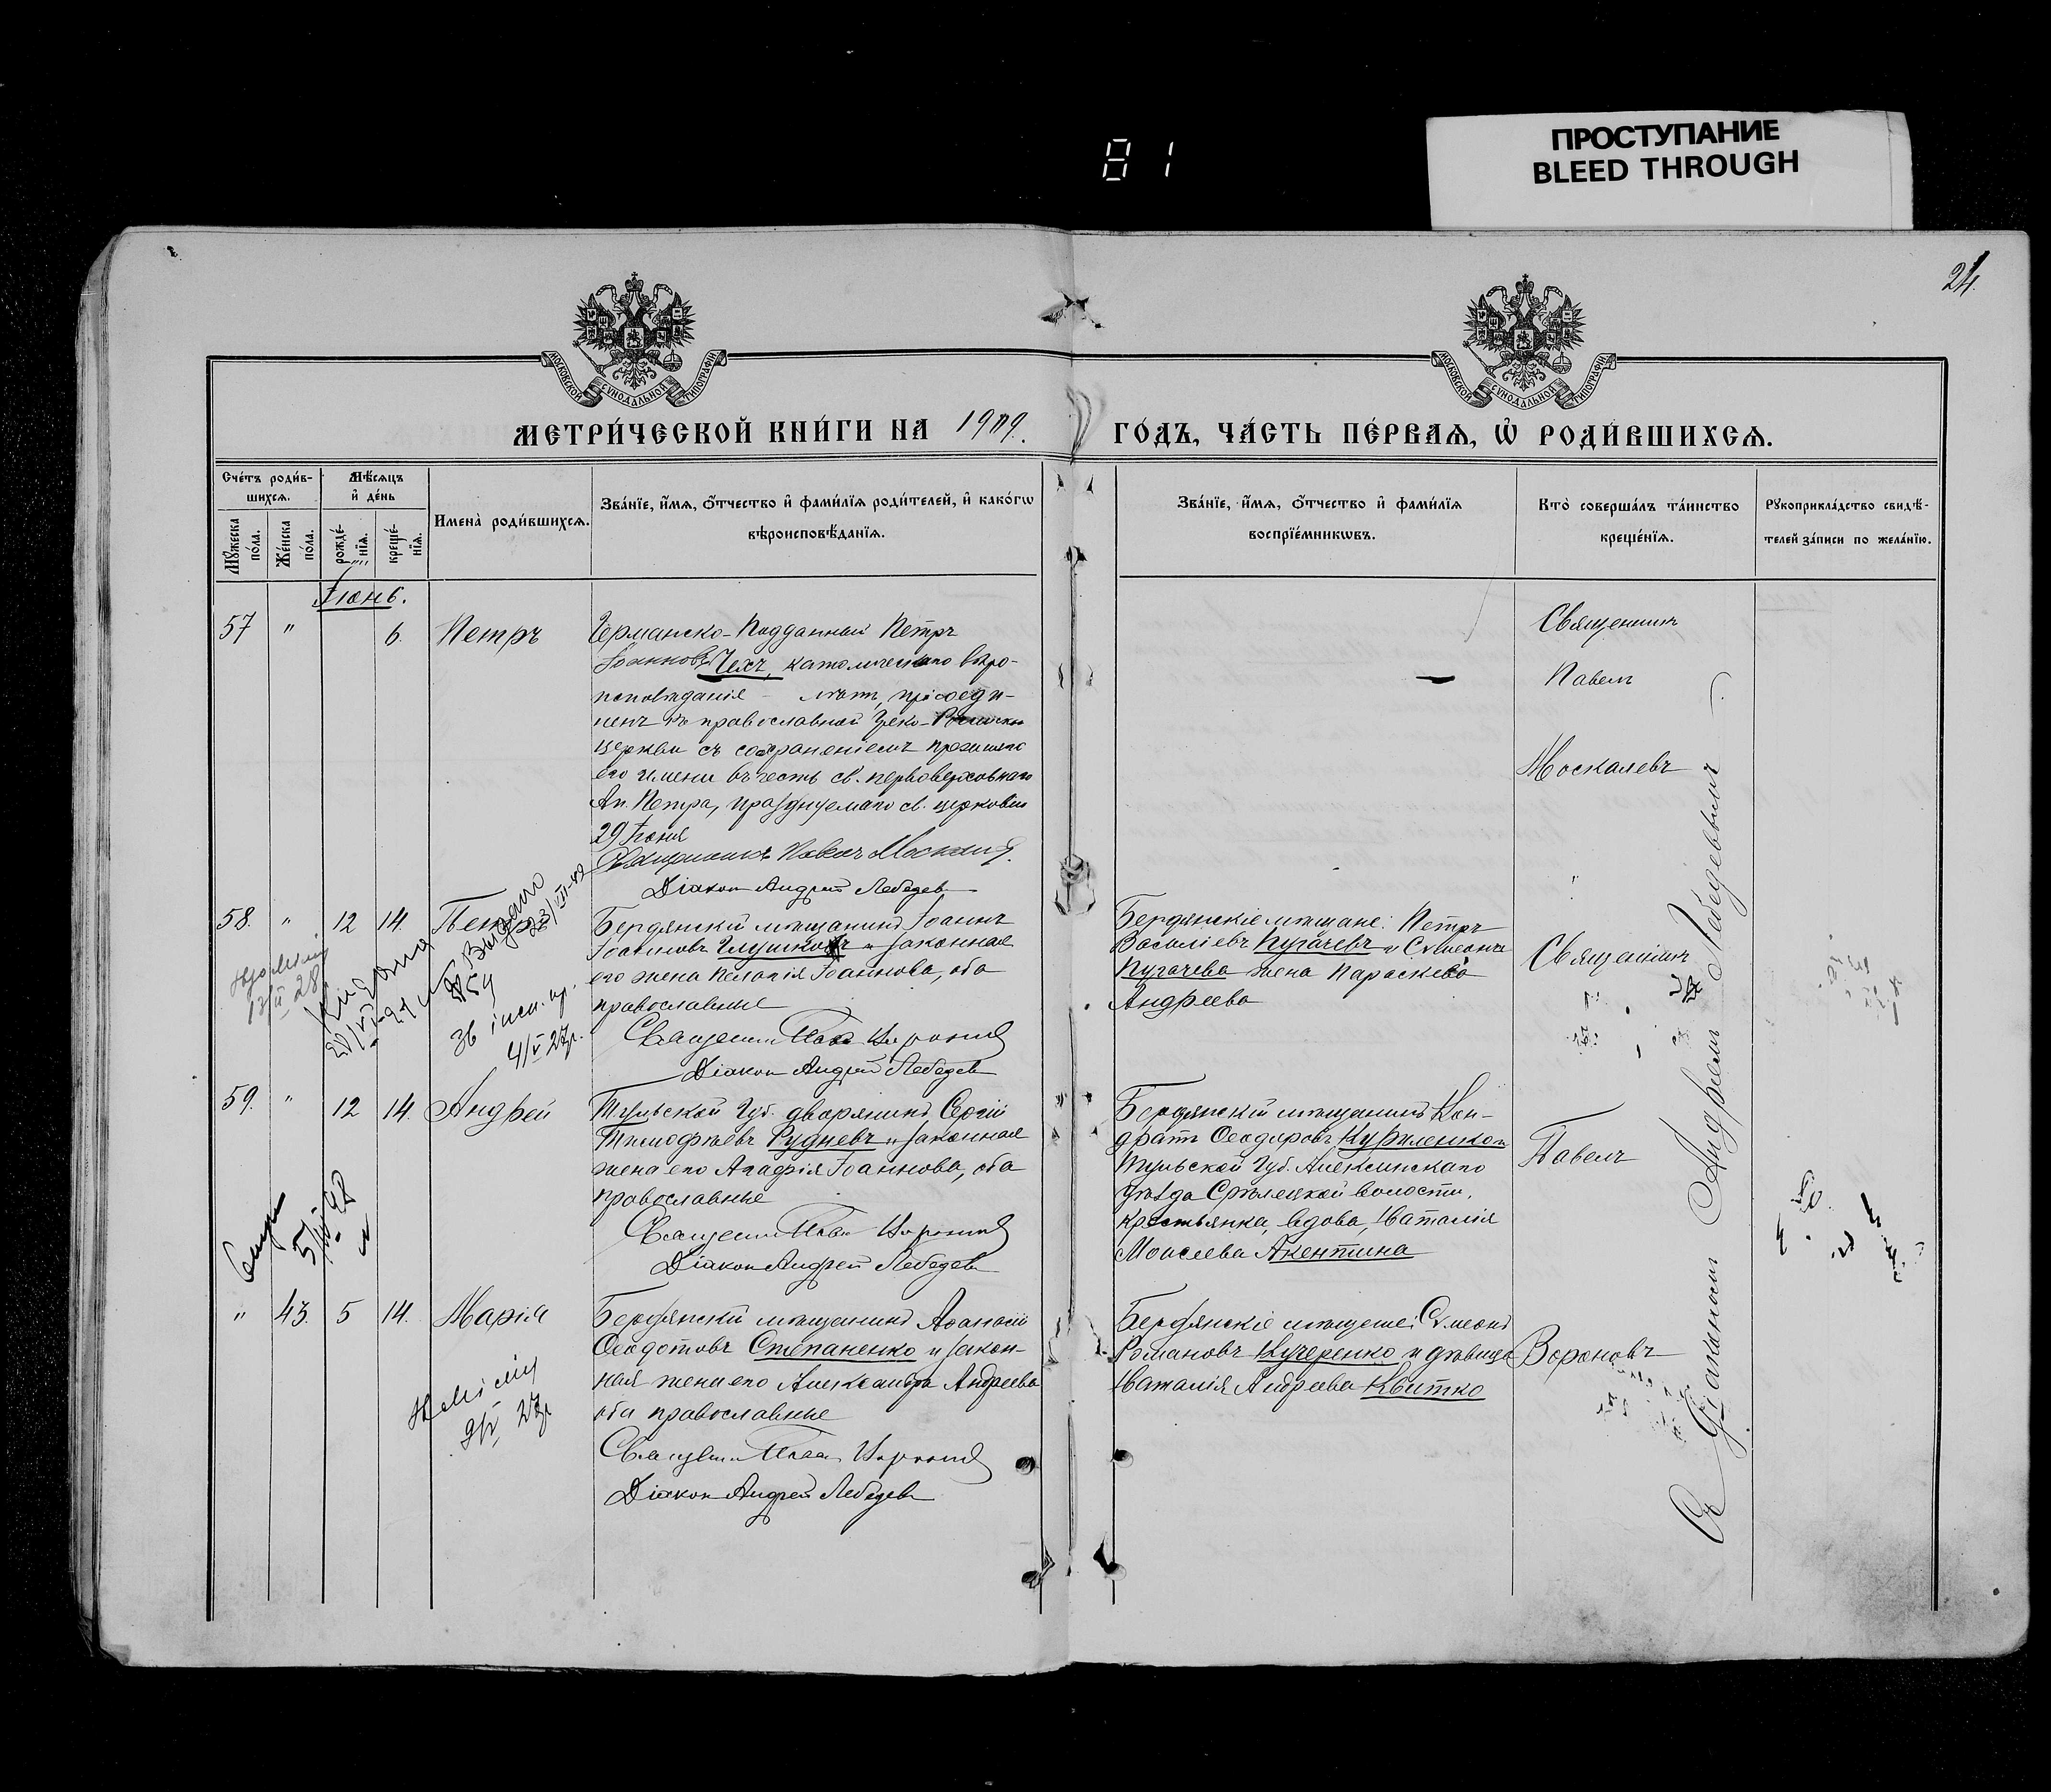 81
ПРОСТУПАНИЕ
BLEED THROUGH
24.
МОСКОВСКОЙ СѴНОДАЛЬНОЙ ТИПОГРАФІИ
МОСКОВСКОЙ СѴНОДАЛЬНОЙ ТИПОГРАФІИ
МЕТРИ́ЧЕСКОЙ КНИ́ГИ НА 1909.
ГО́ДЪ, ЧА́СТЬ ПЕ́РВАѦ, Ѡ҆ РОДИ́ВШИХСѦ.
Сче́тъ роди́в-
шихсѧ.
Мꙋ́жеска
по́ла.
Же́нска
по́ла.
Мѣ́сѧцъ
и҆ де́нь
рожде́-
нїѧ.
креще́-
нїѧ.
Имена̀ роди́вшихсѧ.
Зва́нїе, и҆́мѧ, ѻ҆́тчество и҆ фами́лїѧ роди́телей, и҆ како́гѡ
вѣроисповѣ́данїѧ.
Зва́нїе, и҆́мѧ, ѻ҆́тчество и҆ фами́лїѧ
воспрїе́мникѡвъ.
Кто̀ соверша́лъ та́инство
креще́нїѧ.
Рꙋкоприкла́дство свидѣ́-
телей за́писи по жела́нїю.
Іюнь.
57 " 6. Петръ
Германско-Подданный Петръ
Іоанновъ Чехъ, католическаго вѣро-
исповѣданія – лѣтъ, присоеди-
ненъ къ православной Греко-Россійск.
церкви съ сохраненіемъ прежняго
его имени въ честь св. первоверховнаго
Ап. Петра, празднуемаго св. церковію
29 Іюня
Священникъ Павелъ
Діаконъ Андрей Лебедевъ
—
Священникъ
Павелъ
Москалевъ
58. " 12 14. Петръ
Бердянскій мѣщанинъ Іоаннъ
Іоанновъ Глушковъ и законная
его жена Пелагія Іоаннова, оба
православные
Священникъ Павелъ Вороновъ
Діаконъ Андрей Лебедевъ
Бердянскіе мѣщане: Петръ
Василіевъ Пугачевъ и Симеона
Пугачева жена Параскева
Андреева
Священникъ
13/II 28
Выдано
23/VII-42
№ 59
4/V 27р.
59. " 12 14. Андрей
Тульской Губ. дворянинъ Сергій
Тимофѣевъ Рудневъ и законная
жена его Агафія Іоаннова, оба
православные
Священникъ Павелъ Вороновъ
Діаконъ Андрей Лебедевъ
Бердянскій мѣщанинъ Кон-
дратъ Ѳеодоровъ Куриленко и
Тульской Губ. Алексинскаго
уѣзда Стрѣлецкой волости,
крестьянка, вдова, Наталія
Моисеева Акентина
Павелъ
" 43. 5 14. Марія
Бердянскій мѣщанинъ Аѳанасій
Ѳеодотовъ Степаненко и закон-
ная жена его Александра Андреева
оба православные
Священникъ Павелъ Вороновъ
Діаконъ Андрей Лебедевъ
Бердянскіе мѣщане: Симеонъ
Романовъ Кучеренко и дѣвица
Наталія Андреева Квитко
Вороновъ
Съ Діакономъ Андреемъ Лебедевымъ.